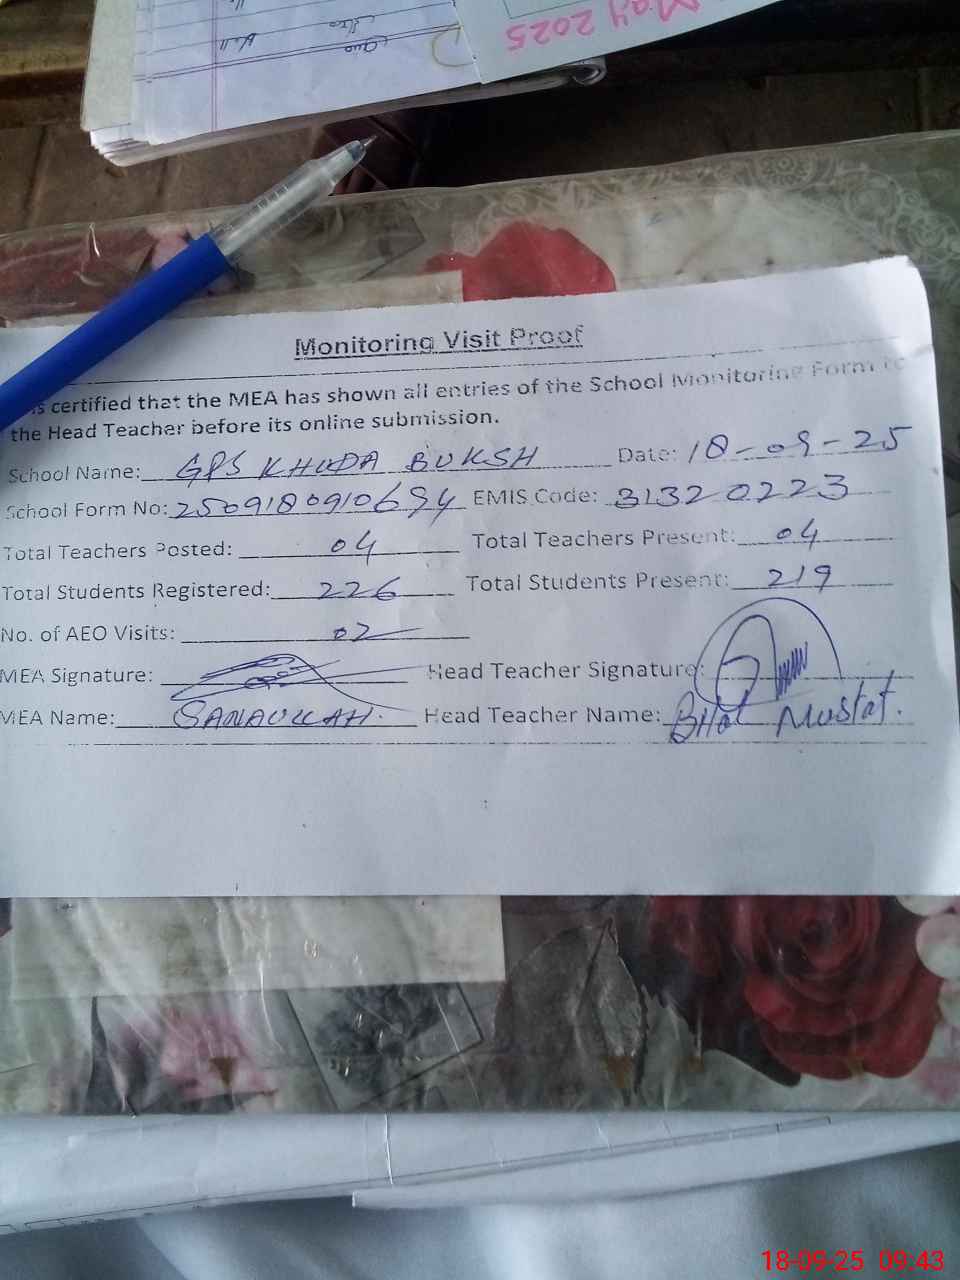 May 2025
Monitoring Visit Proof
is certified that the MEA has shown all entries of the School Monitoring Form to
the Head Teacher before its online submission.
School Name: GPS KHUDA BUKSH Date: 18-09-25
School Form No: 2509180910694 EMIS Code: 31320223
Total Teachers Posted: 04 Total Teachers Present: 04
Total Students Registered: 226 Total Students Present: 219
No. of AEO Visits: 02
MEA Signature: Head Teacher Signature:
MEA Name: SANAULLAH. Head Teacher Name: Bilal Mustaf.
18-09-25 09:43